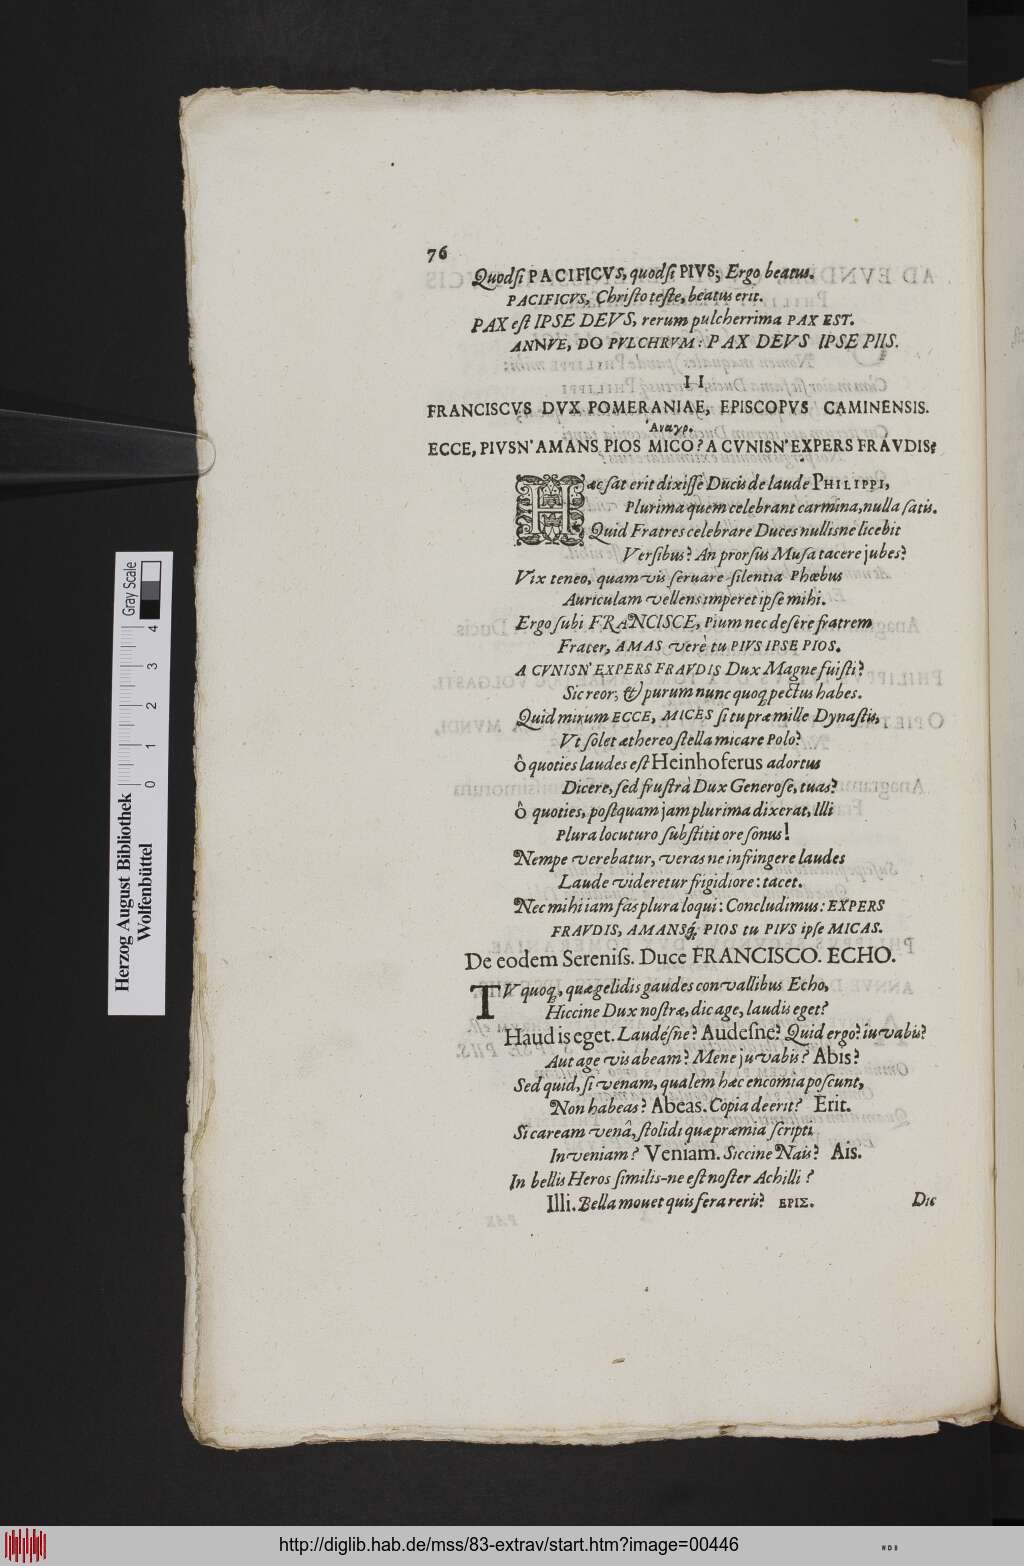 76
Quodſi PACIFICVS, quodſi PIVS; Ergo beatus.
PACIFICVS, Chriſto teſte, beatus erit.
PAX eſt IPSE DEVS, rerum pulcherrima PAX EST.
ANNVE, DO PVLCHRVM: PAX DEVS IPSE PIIS.
II
FRANCISCVS DVX POMERANIAE, EPISCOPVS CAMINENSIS.
Ἀναγρ.
ECCE, PIVSN' AMANS PIOS MICO? A CVNISN' EXPERS FRAVDIS?
Hæc ſat erit dixiſſe Ducis de laude PHILIPPI,
Plurima quem celebrant carmina, nulla ſatis.
Quid Fratres celebrare Duces nullisne licebit
Verſibus? An prorſùs Muſa tacere jubes?
Vix teneo, quamvis ſervare ſilentia Phœbus
Auriculam vellens imperet ipſe mihi.
Ergo ſubi FRANCISCE, Pium nec deſere fratrem
Frater, AMAS verè tu PIVS IPSE PIOS.
A CVNISN' EXPERS FRAVDIS Dux Magne fuiſti?
Sic reor; & purum nunc quoq; pectus habes.
Quid mirum ECCE, MICES ſi tu præ mille Dynaſtis,
Vt ſolet æthereo ſtella micare Polo?
ô quoties laudes eſt Heinhoferus adortus
Dicere, ſed fruſtrà Dux Generoſe, tuas?
ô quoties, poſtquam jam plurima dixerat, Illi
Plura locuturo ſubſtitit ore ſonus!
Nempe verebatur, veras ne infringere laudes
Laude videretur frigidiore: tacet.
Nec mihi iam fas plura loqui: Concludimus: EXPERS
FRAVDIS, AMANSq́; PIOS tu PIVS ipſe MICAS.
De eodem Sereniſs. Duce FRANCISCO. ECHO.
TV quoq;, quæ gelidis gaudes convallibus Echo,
Hiccine Dux noſtræ, dic age, laudis eget?
Haud is eget. Laudéſne? Audeſne? Quid ergo? iuvabis?
Aut age vis abeam? Mene juvabis? Abis?
Sed quid, ſi venam, qualem hæc encomia poſcunt,
Non habeas? Abeas. Copia deerit? Erit.
Si caream venâ, ſtolidi quæ præmia ſcripti
Inveniam? Veniam. Siccine Nais? Ais.
In bellis Heros ſimilis-ne eſt noſter Achilli?
Illi. Bella mouet quis fera reris? ΕΡΙΣ.
Dic
Herzog August Bibliothek
Wolfenbüttel
0 1 2 3 4
Gray Scale
http://diglib.hab.de/mss/83-extrav/start.htm?image=00446
WDB